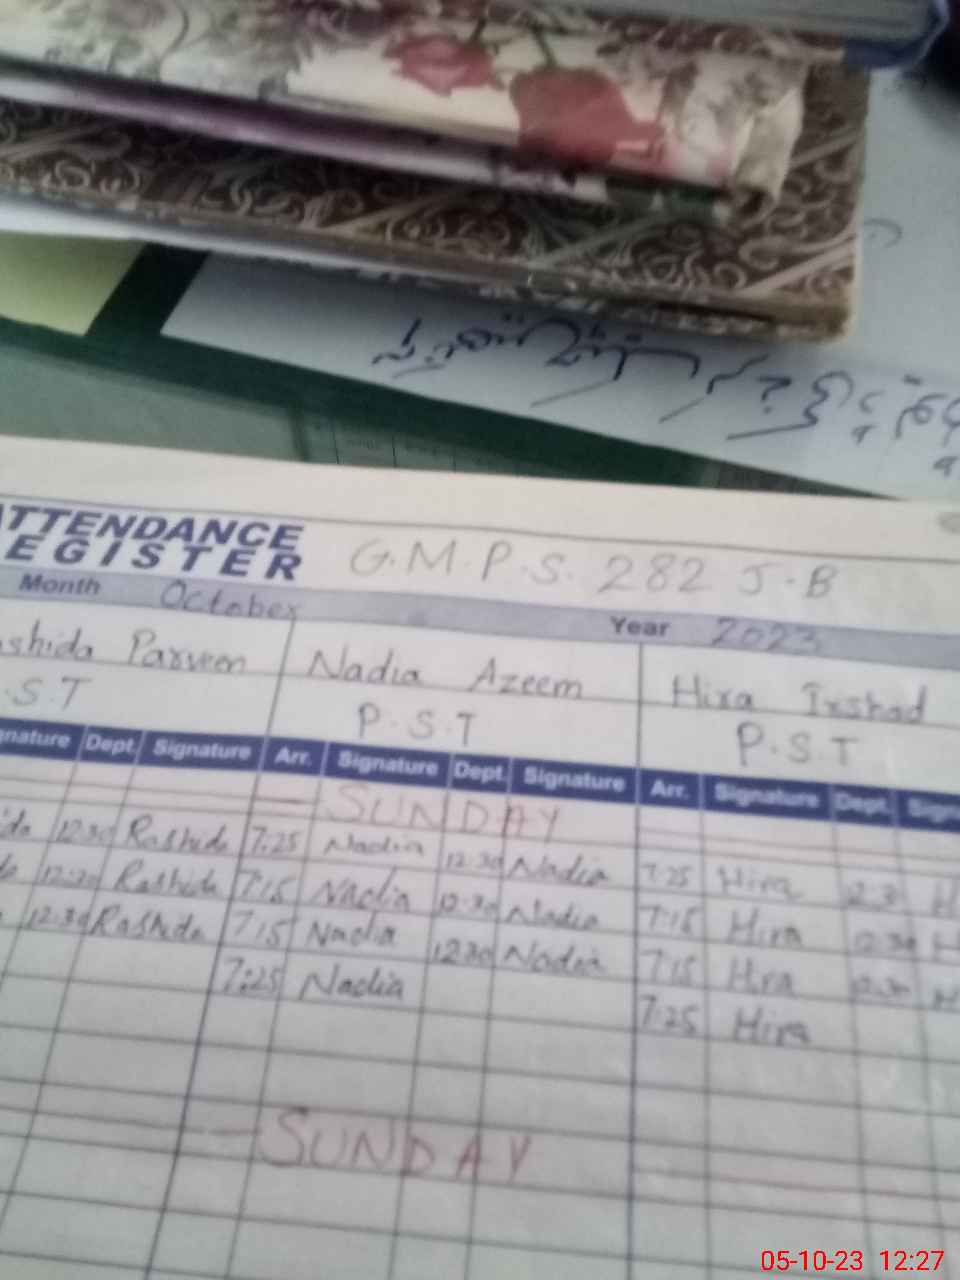 ATTENDANCE
EGISTER G.M.P.S. 282 J.B
Month October Year 2023
shida Parveen Nadia Azeem Hira Irshad
.S.T P.S.T P.S.T
nature Dept. Signature Arr. Signature Dept. Signature Arr. Signature Dept. Sign
SUNDAY
ida 12:30 Rashida 7:25 Nadia 12:30 Nadia 7:25 Hira 12:30 H
12:30 Rashida 7:15 Nadia 12:30 Nadia 7:15 Hira 12:30 H
12:30 Rashida 7:15 Nadia 12:30 Nadia 7:15 Hira 12:30 H
7:25 Nadia 7:25 Hira
SUNDAY
05-10-23 12:27